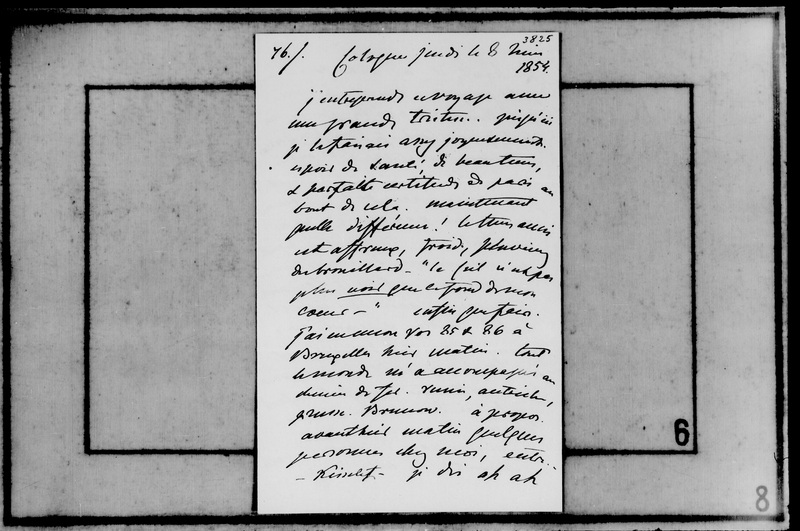 3825
76./. Cologne jeudi le 8 Juin
1854.
j'entreprends ce voyage avec
une grande tristesse. jusqu'ici
je le faisais assez joyeusement.
espoir de santé, de beau tems,
& parfaite certitude de paix au
bout de cela. maintenant
quelle différence! le tems aussi
est affreux, froid, pluvieux
du brouillard - "le Ciel n'est pas
plus noir que le fond de mon
coeur -" enfin que faire.
j'ai eu mon Vos 85 & 86 à
Bruxelles hier matin. tout
le monde m'a accompagné au
chemin de fer. russie, autriche,
prusse. Brunow. à propos
avanthier matin quelques
personnes chez moi, entr:
- Kisseleff - je dis ah ah
6
8